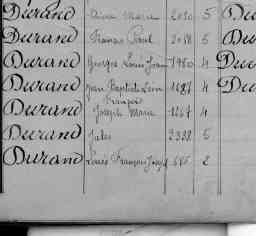 Durand Marie 2030 5 Du
Durand Francois Paul 2018 5 Du
Durand Georges Louis Jean 1980 4 Du
Durand Jean Baptiste Léon François 1287 4 Du
Durand Joseph Marie 1267 4
Durand Jules 2328 5
Durand Louis François Joseph 686 2